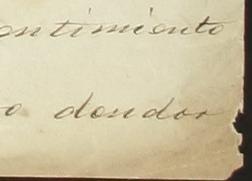 entimiento
o deudor